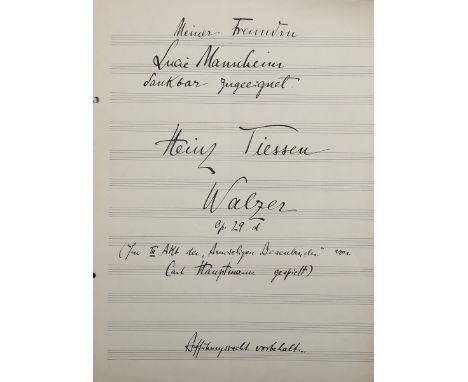 Meiner Freundin
Lucie Mannheim
dankbar zugeeignet.
Heinz Tiessen
Walzer
Op. 29 d
(Im III. Akt der „Armseligen Besenbinder" von
Carl Hauptmann gespielt)
Aufführungsrecht vorbehalten.